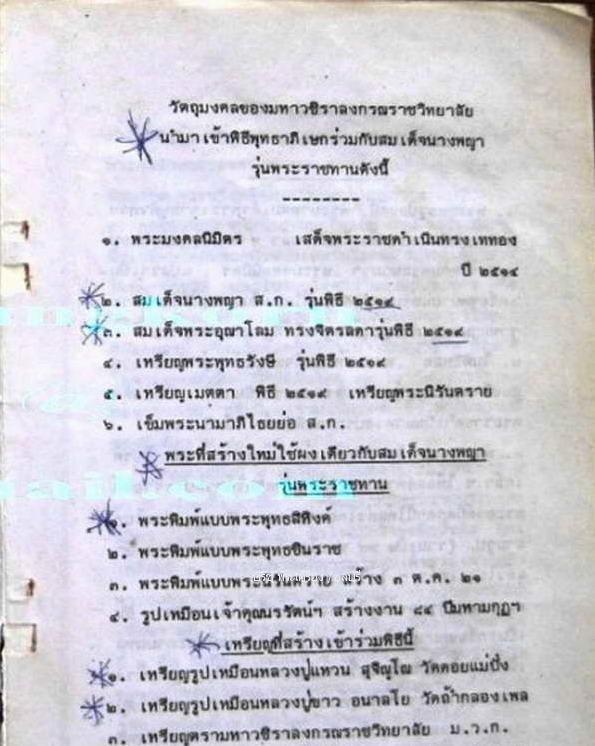 วัตถุมงคลของมหาวชิราลงกรณราชวิทยาลัย
นำมาเข้าพิธีพุทธาภิเษกร่วมกับสมเด็จนางพญา
รุ่นพระราชทานดังนี้
--------
๑. พระมงคลนิมิตร เสด็จพระราชดำเนินทรงเททอง
ปี ๒๕๑๔
๒. สมเด็จนางพญา ส.ก. รุ่นพิธี ๒๕๑๙
๓. สมเด็จพระอุณาโลม ทรงจิตรลดารุ่นพิธี ๒๕๑๙
๔. เหรียญพระพุทธรังษี รุ่นพิธี ๒๕๑๙
๕. เหรียญเมตตา พิธี ๒๕๑๙ เหรียญพระนิรันตราย
๖. เข็มพระนามาภิไธยย่อ ส.ก.
พระที่สร้างใหม่ใช้ผงเดียวกับสมเด็จนางพญา
รุ่นพระราชทาน
๑. พระพิมพ์แบบพระพุทธสิหิงค์
๒. พระพิมพ์แบบพระพุทธชินราช
๓. พระพิมพ์แบบพระนิรันตราย สร้าง ๓ ต.ค. ๒๑
๔. รูปเหมือนเจ้าคุณนรรัตน์ฯ สร้างงาน ๘๔ ปีมหามกุฏฯ
เหรียญที่สร้างเข้าร่วมพิธีนี้
๑. เหรียญรูปเหมือนหลวงปู่แหวน สุจิณโณ วัดดอยแม่ปั๋ง
๒. เหรียญรูปเหมือนหลวงปู่ขาว อนาลโย วัดถ้ำกลองเพล
๓. เหรียญตรามหาวชิราลงกรณราชวิทยาลัย ม.ว.ก.